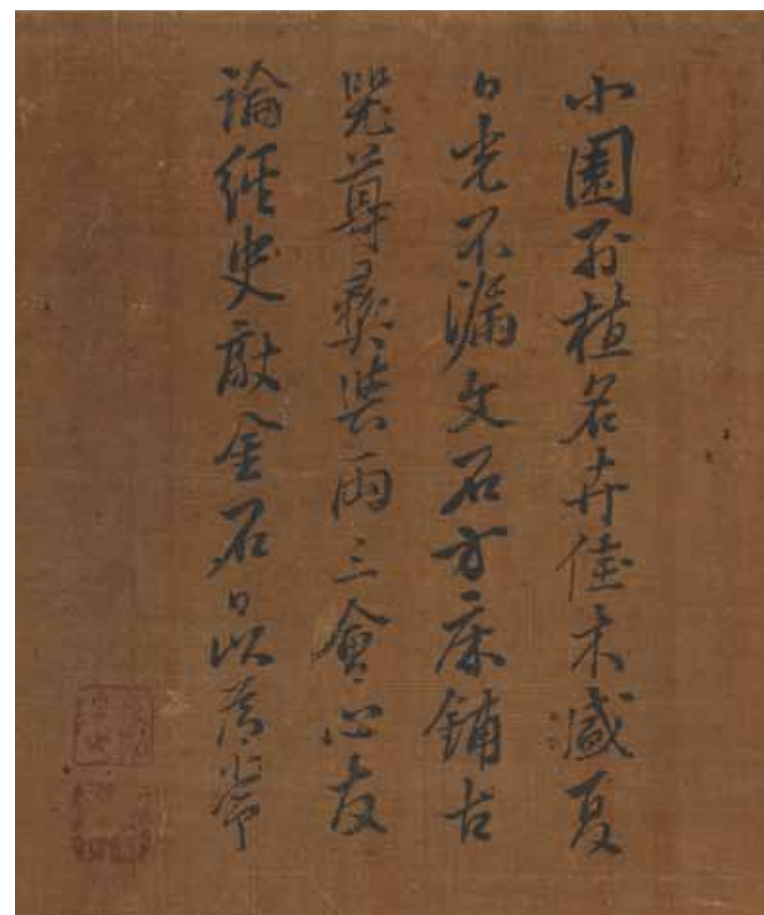 小園羽植名卉佳木盛夏
日光不漏文石方床鋪古
罍尊彝與兩三會心友
論經史敲金石日以為常